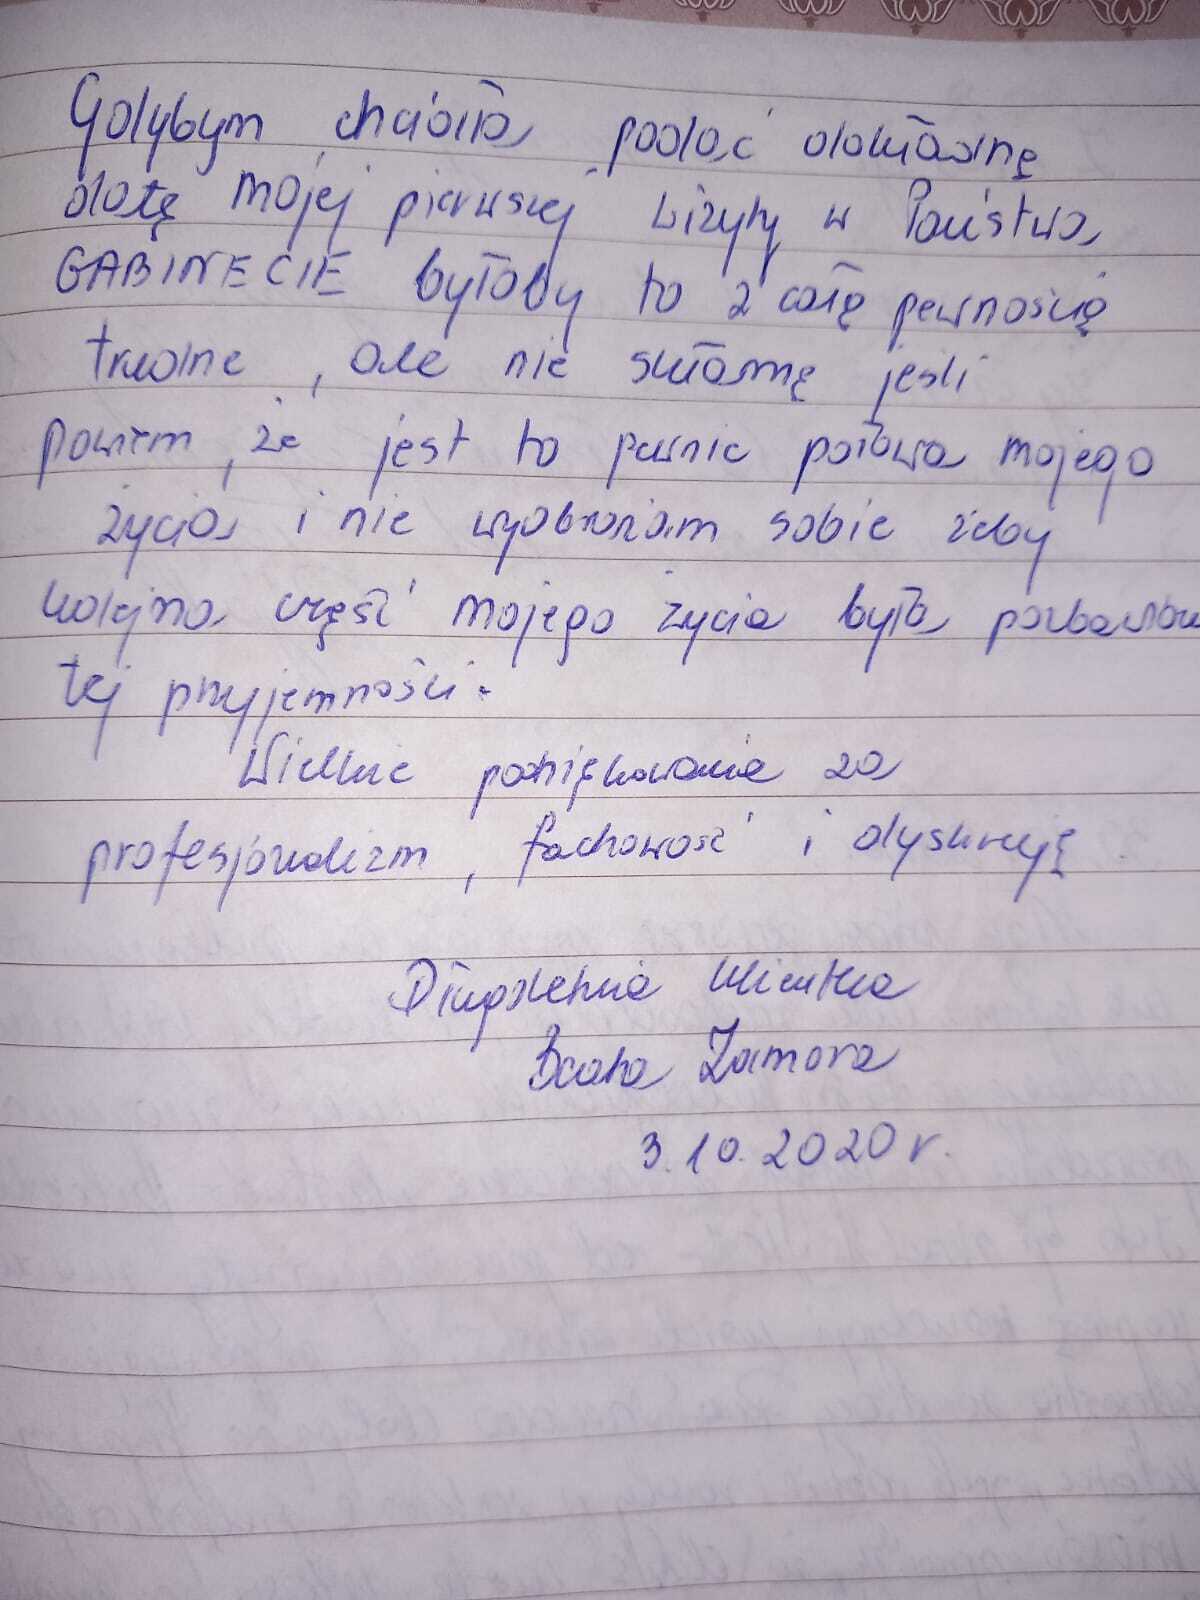 Gdybym chciała podać dokładnę
datę mojej pierwszej wizyty w Państwa
GABINECIE byłoby to z całą pewnością
trudne, ale nie skłamię jeśli
powiem, że jest to pewnie połowa mojego
życia i nie wyobrażam sobie żeby
kolejna część mojego życia była pozbawiona
tej przyjemności.
Wielkie podziękowania za
profesjonalizm, fachowość i dyskrecję
Długoletnia klientka
Beata Zamora
3.10.2020 r.